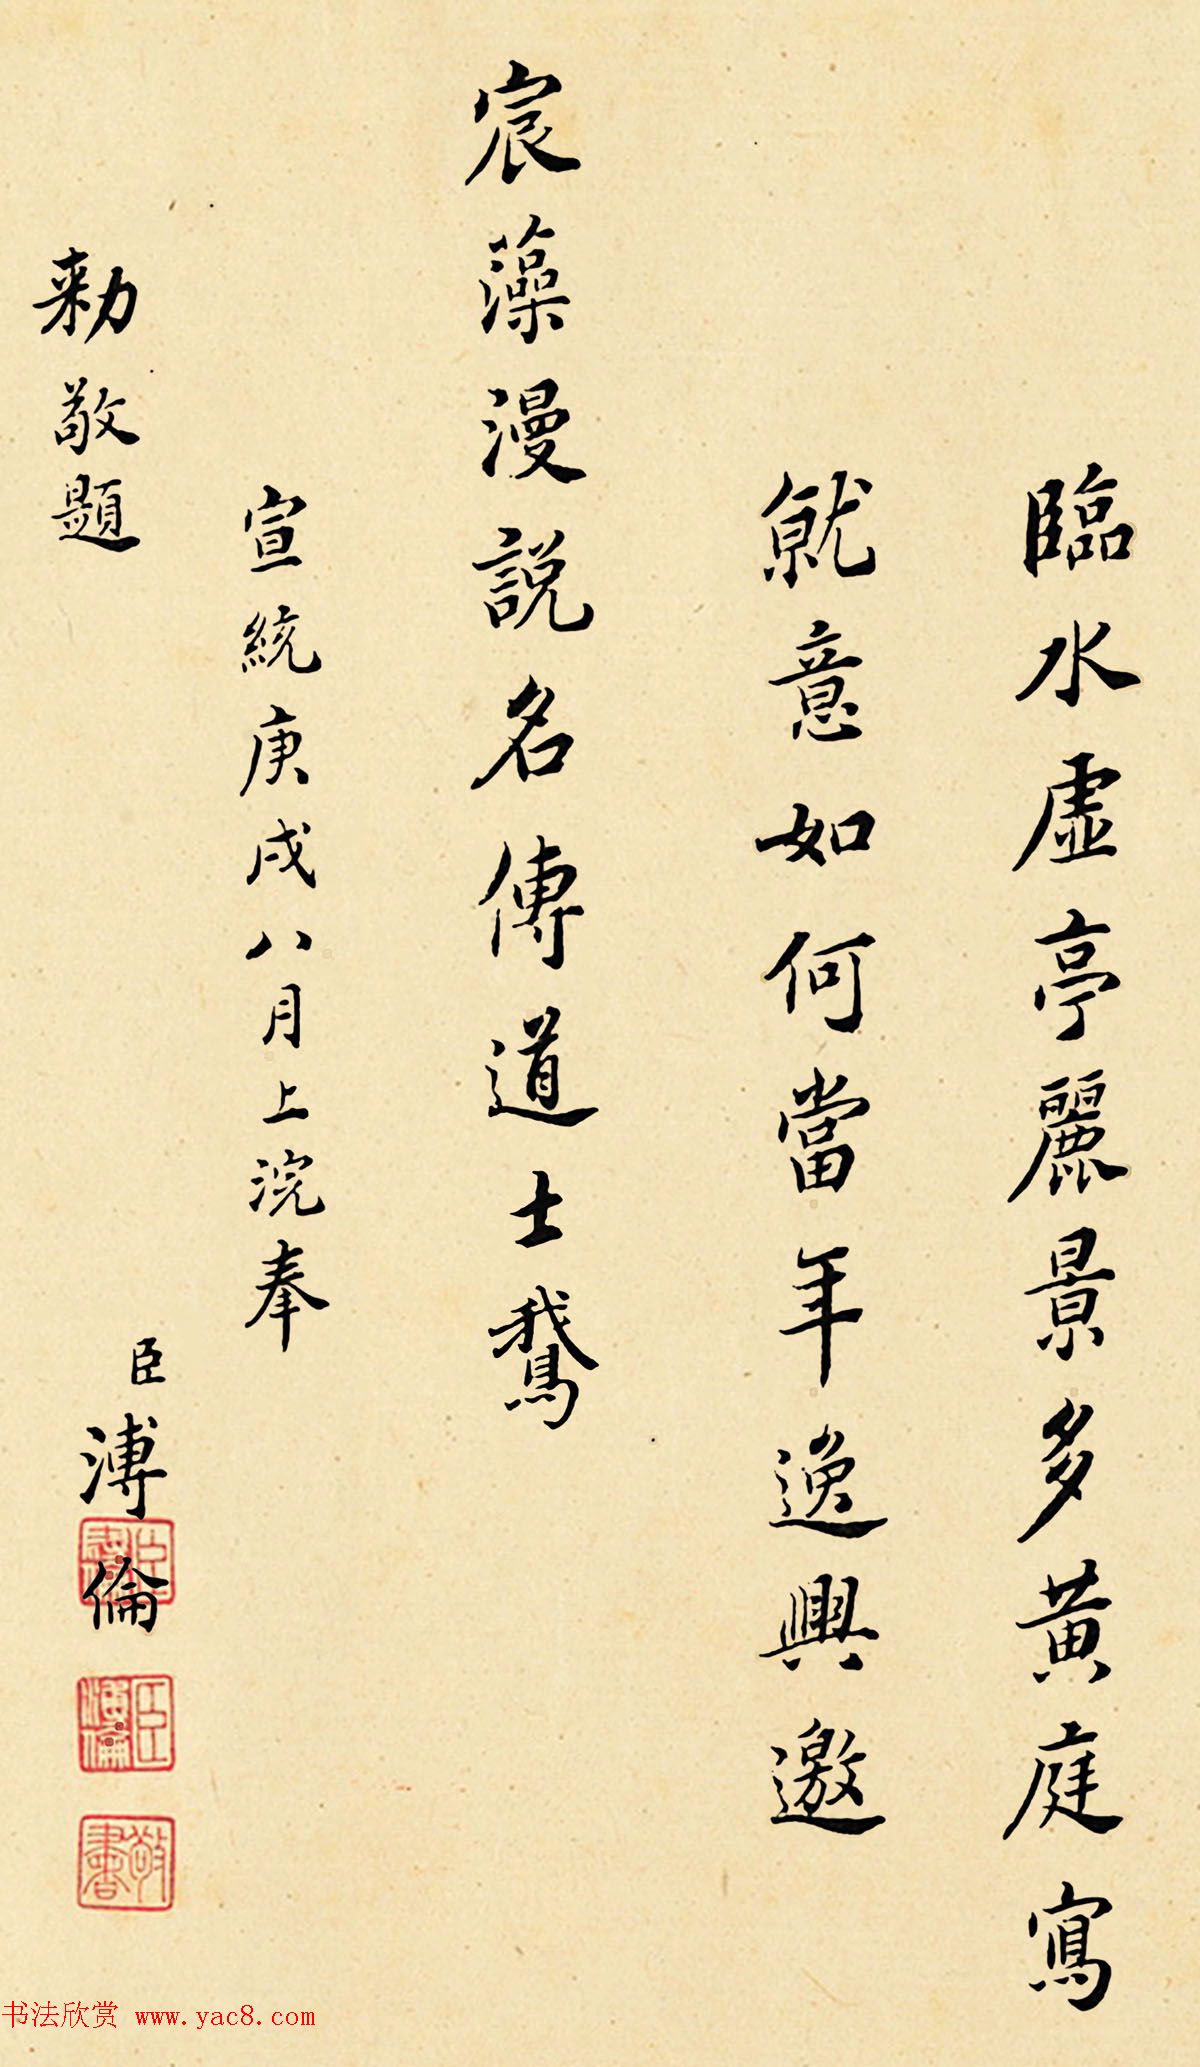 臨水虛亭麗景多黃庭寫
就意如何當年逸興邀
宸藻漫說名傳道士鵞
宣統庚戌八月上浣奉
勑敬題
臣溥倫
臣溥倫
敬書
书法欣赏 www.yac8.com